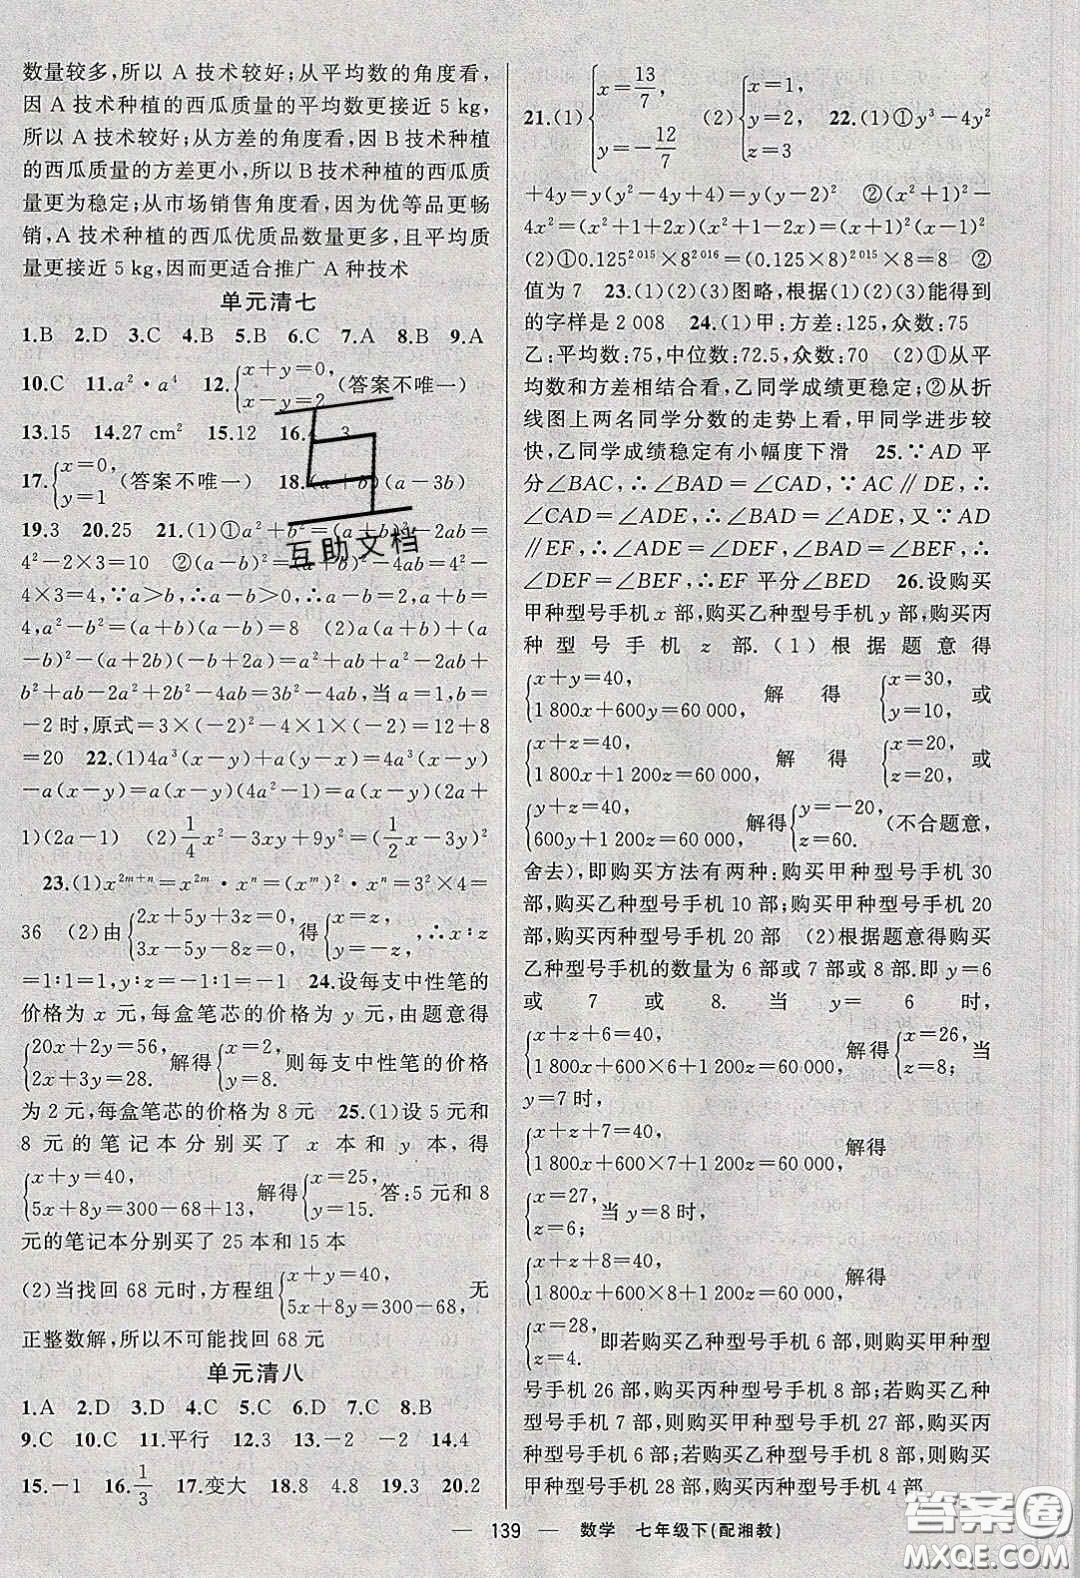 数量较多,所以 A 技术较好;从平均数的角度看,
因 A 技术种植的西瓜质量的平均数更接近 5 kg,
所以 A 技术较好;从方差的角度看,因 B 技术种植
的西瓜质量的方差更小,所以 B 技术种植的西瓜质
量更为稳定;从市场销售角度看,因为优等品更畅
销,A 技术种植的西瓜优质品数量更多,且平均质
量更接近 5 kg,因而更适合推广 A 种技术
单元清七
1.B 2.D 3.C 4.B 5.B 6.C 7.A 8.B 9.A
10.C 11.a²·a⁴ 12.{x+y=0, x-y=2 (答案不唯一)
13.15 14.27 cm² 15.12 16. 3
17.{x=0, y=1 (答案不唯一) 18.(a+b)(a-3b)
19.3 20.25 21.(1)①a²+b²=(a+b)²-2ab=
4²-2×3=10 ②(a-b)²=(a+b)²-4ab=4²-
4×3=4,∵a>b,∴a-b>0,∴a-b=2,a+b=
4,a²-b²=(a+b)(a-b)=8 (2)a(a+b)+(a
-b)²-(a+2b)(-b+2a)=a²+ab+a²-2ab+
b²+ab-2a²+2b²-4ab=3b²-4ab,当a=1,b=
-2时,原式=3×(-2)²-4×1×(-2)=12+8
=20 22.(1)4a³(x-y)+a(y-x)=4a³(x-y)
-a(x-y)=a(x-y)(4a²-1)=a(x-y)(2a+
1)(2a-1) (2)1/4x²-3xy+9y²=(1/2x-3y)²
23.(1)x²ᵐ⁺ⁿ=x²ᵐ·xⁿ=(xᵐ)²·xⁿ=3²×4=
36 (2)由{2x+5y+3z=0, 3x-5y-8z=0 得{x=z, y=-z ,∴x:z
=1:1=1,y:z=-1:1=-1 24.设每支中性笔的
价格为 x 元,每盒笔芯的价格为 y 元,由题意得
{20x+2y=56, 2x+3y=28. 解得{x=2, y=8. 则每支中性笔的价格
为 2 元,每盒笔芯的价格为 8 元 25.(1)设 5 元和
8 元的笔记本分别买了 x 本和 y 本,得
{x+y=40, 5x+8y=300-68+13, 解得{x=25, y=15. 答:5 元和 8
元的笔记本分别买了 25 本和 15 本
(2)当找回 68 元时,方程组{x+y=40, 5x+8y=300-68, 无
正整数解,所以不可能找回 68 元
单元清八
1.A 2.D 3.D 4.C 5.C 6.D 7.C 8.B
9.C 10.C 11.平行 12.3 13.-2 -2 14.4
15.-1 16.1/3 17.变大 18.8 4.8 19.3 20.2
21.(1){x=13/7, y=-12/7 (2){x=1, y=2, z=3 22.(1)①y³-4y²
+4y=y(y²-4y+4)=y(y-2)² ②(x²+1)²-
4x²=(x²+1+2x)(x²+1-2x)=(x+1)²(x-1)²
(2)①0.125²⁰¹⁵×8²⁰¹⁶=(0.125×8)²⁰¹⁵×8=8 ②
值为 7 23.(1)(2)(3)图略,根据(1)(2)(3)能得到
的字样是 2 008 24.(1)甲:方差:125,众数:75
乙:平均数:75,中位数:72.5,众数:70 (2)①从平
均数和方差相结合看,乙同学成绩更稳定;②从折
线图上两名同学分数的走势上看,甲同学进步较
快,乙同学成绩稳定有小幅度下滑 25.∵AD 平
分∠BAC,∴∠BAD=∠CAD,∵AC∥DE,∴
∠CAD=∠ADE,∴∠BAD=∠ADE,又∵AD
∥EF,∴∠ADE=∠DEF,∠BAD=∠BEF,∴
∠DEF=∠BEF,∴EF 平分∠BED 26.设购买
甲种型号手机 x 部,购买乙种型号手机 y 部,购买丙
种型号手机 z 部.(1)根据题意得
{x+y=40, 1 800x+600y=60 000, 解得 {x=30, y=10, 或
{x+z=40, 1 800x+1 200z=60 000, 解得{x=20, z=20, 或
{y+z=40, 600y+1 200z=60 000, 解得{y=-20, z=60. (不合题意,
舍去),即购买方法有两种:购买甲种型号手机 30
部,购买乙种型号手机 10 部;购买甲种型号手机 20
部,购买丙种型号手机 20 部 (2)根据题意得购买
乙种型号手机的数量为 6 部或 7 部或 8 部.即 y=6
或 7 或 8. 当 y= 6 时,
{x+z+6=40, 1 800x+600×6+1 200z=60 000, 解得{x=26, z=8, 当
y=7 时,
{x+z+7=40, 1 800x+600×7+1 200z=60 000, 解得
{x=27, z=6; 当 y=8 时,
{x+z+8=40, 1 800x+600×8+1 200z=60 000, 解得
{x=28, z=4. 即若购买乙种型号手机 6 部,则购买甲种型
号手机 26 部,购买丙种型号手机 8 部;若购买乙种
型号手机 7 部,则购买甲种型号手机 27 部,购买丙
种型号手机 6 部;若购买乙种型号手机 8 部,则购买
甲种型号手机 28 部,购买丙种型号手机 4 部
互助文档
— 139 — 数学 七年级下(配湘教)
答案圈
MXQE.COM